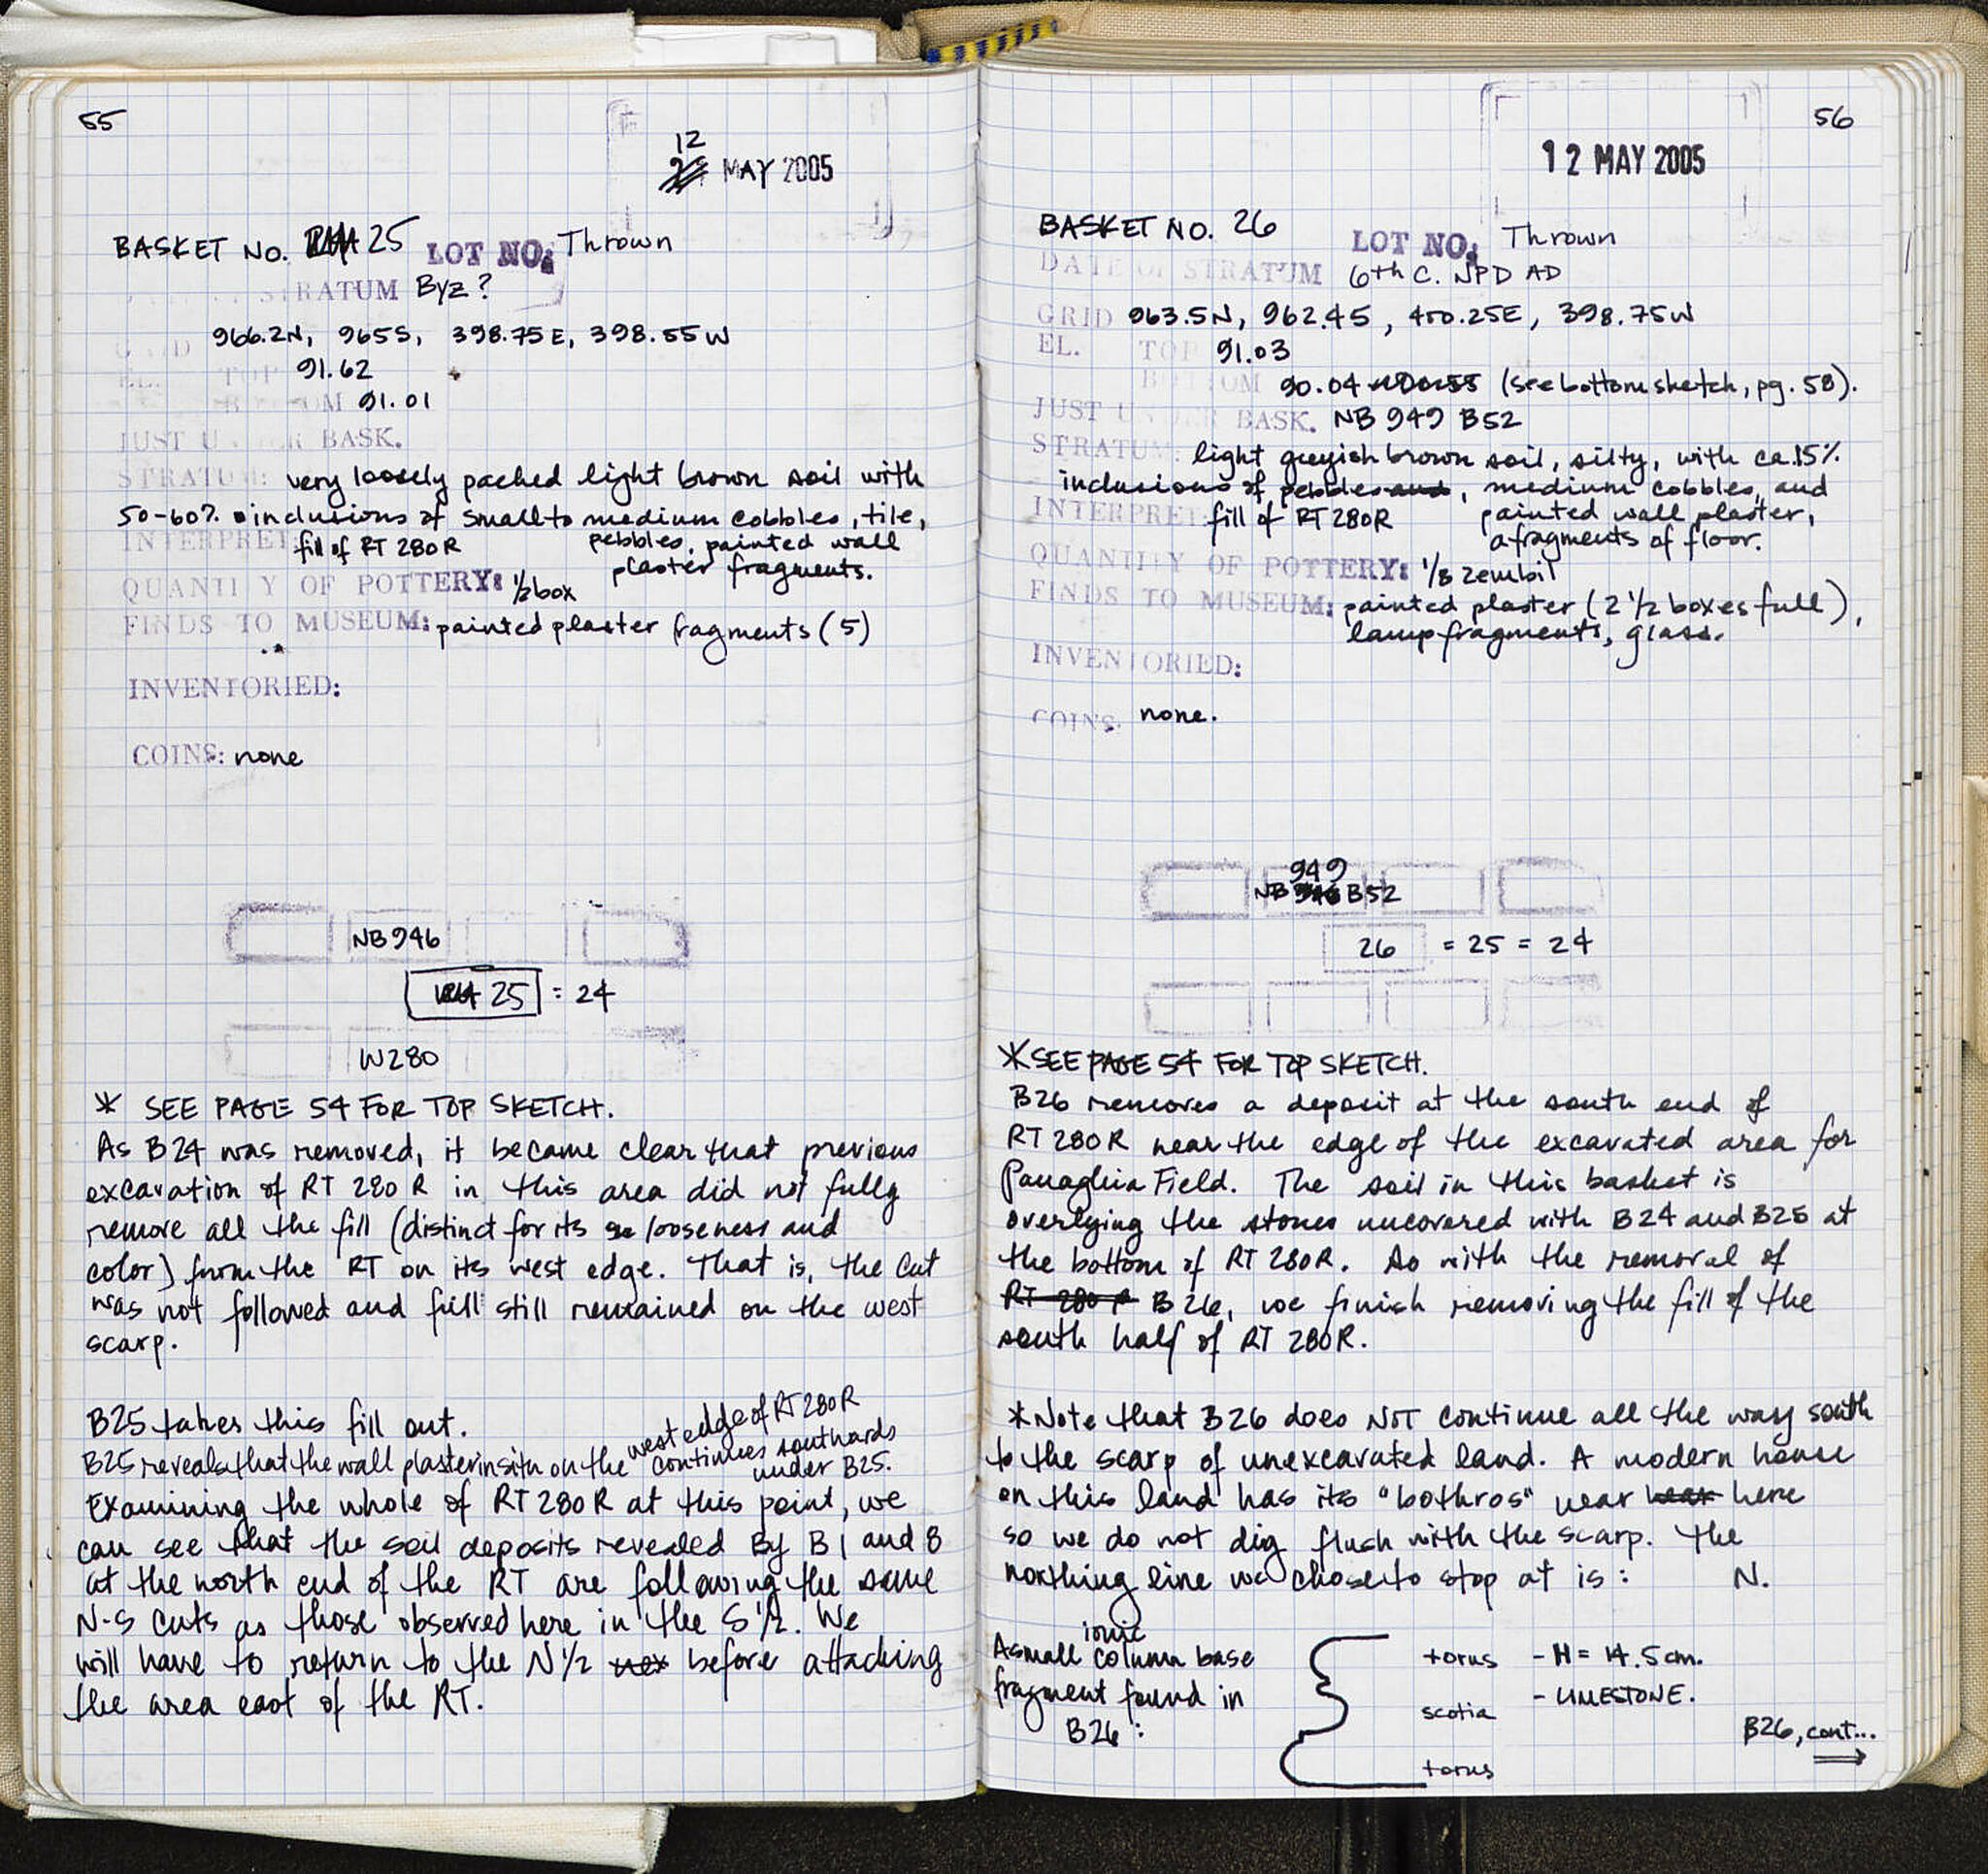 55
12
MAY 2005
BASKET NO. 25 LOT NO: Thrown
STRATUM Byz?
GRID 966.2N, 965S, 398.75E, 398.55W
EL. TOP 91.62
BOTTOM 91.01
JUST UNDER BASK.
STRATUM: very loosely packed light brown soil with
50-60% inclusions of small to medium cobbles, tile,
pebbles, painted wall
plaster fragments.
INTERPRET: fill of RT 280R
QUANTITY OF POTTERY: 1/2 box
FINDS TO MUSEUM: painted plaster fragments (5)
INVENTORIED:
COINS: none
NB946
25 = 24
W280
* SEE PAGE 54 FOR TOP SKETCH.
As B24 was removed, it became clear that previous
excavation of RT 280 R in this area did not fully
remove all the fill (distinct for its looseness and
color) from the RT on its west edge. That is, the cut
was not followed and fill still remained on the west
scarp.
B25 takes this fill out.
B25 reveals that the wall plaster in situ on the west edge of RT 280R
continues southwards
under B25.
Examining the whole of RT 280R at this point, we
can see that the soil deposits revealed By B1 and 8
at the north end of the RT are following the same
N-S cuts as those observed here in the S 1/2. We
will have to return to the N 1/2 before attacking
the area east of the RT.
56
12 MAY 2005
BASKET NO. 26 LOT NO: Thrown
DATE OF STRATUM 6th C. NPD AD
GRID 963.5N, 962.4S, 400.25E, 398.75W
EL. TOP 91.03
BOTTOM 90.04 (see bottom sketch, pg. 58).
JUST UNDER BASK. NB 949 B52
STRATUM: light greyish brown soil, silty, with ca. 15%
inclusions of pebbles and, medium cobbles, and
painted wall plaster,
fragments of floor.
INTERPRET: fill of RT 280R
QUANTITY OF POTTERY: 1/8 zembil
FINDS TO MUSEUM: painted plaster (2 1/2 boxes full),
lamp fragments, glass.
INVENTORIED:
COINS. none.
949
NB B52
26 = 25 = 24
* SEE PAGE 54 FOR TOP SKETCH.
B26 removes a deposit at the south end of
RT 280R near the edge of the excavated area for
Panaghia Field. The soil in this basket is
overlying the stones uncovered with B24 and B25 at
the bottom of RT 280R. So with the removal of
RT 280 R B26, we finish removing the fill of the
south half of RT 280R.
* Note that B26 does NOT continue all the way south
to the scarp of unexcavated land. A modern house
on this land has its "bothros" near here
so we do not dig flush with the scarp. The
northing line we chose to stop at is: N.
A small ionic column base
fragment found in
B26:
torus
scotia
torus
- H = 14.5 cm.
- LIMESTONE.
B26, cont...